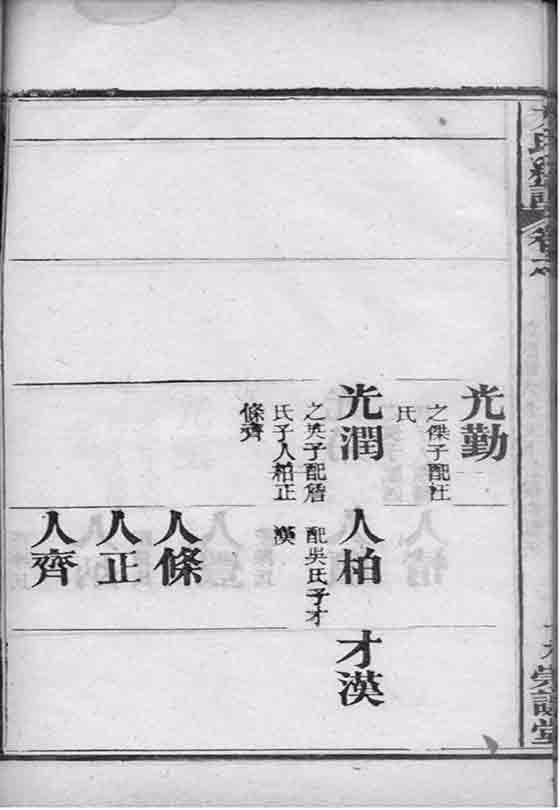 光勤
之傑子配汪
氏
光潤
之英子配詹
氏子人柏正
條齊
人柏
配吳氏子才
漢
人條
人正
人齊
才漢